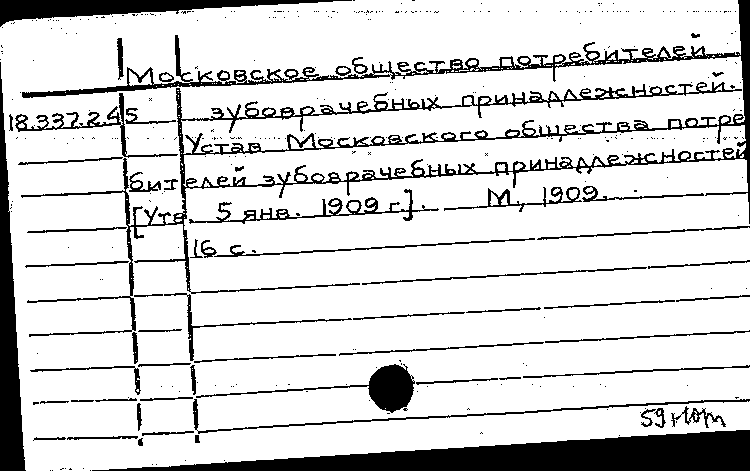 Московское общество потребителей
18.337.2.45 зубоврачебных принадлежностей.
Устав Московского общества потре
бителей зубоврачебных принадлежностей
[Утв. 5 янв. 1909 г.]. М., 1909.
16 с.